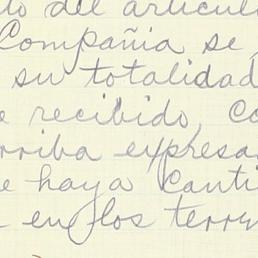 to del articul
Compañia se
su totalidad
e recibido, co
rriba expresa
e haya canti
en los terr